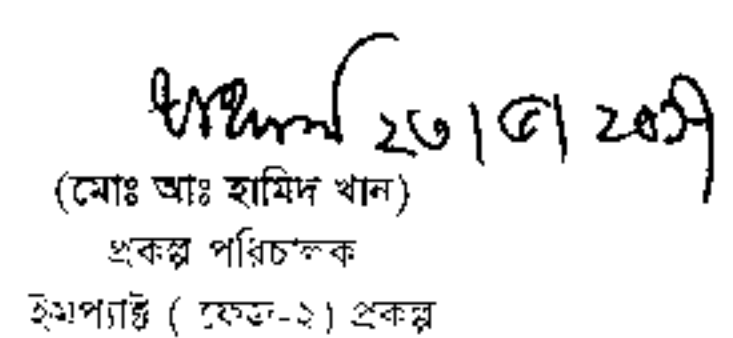 ২৩|৫|২০১৭
(মোঃ আঃ হামিদ খান)
প্রকল্প পরিচালক
ইমপ্যাক্ট ( ফেজ-২) প্রকল্প